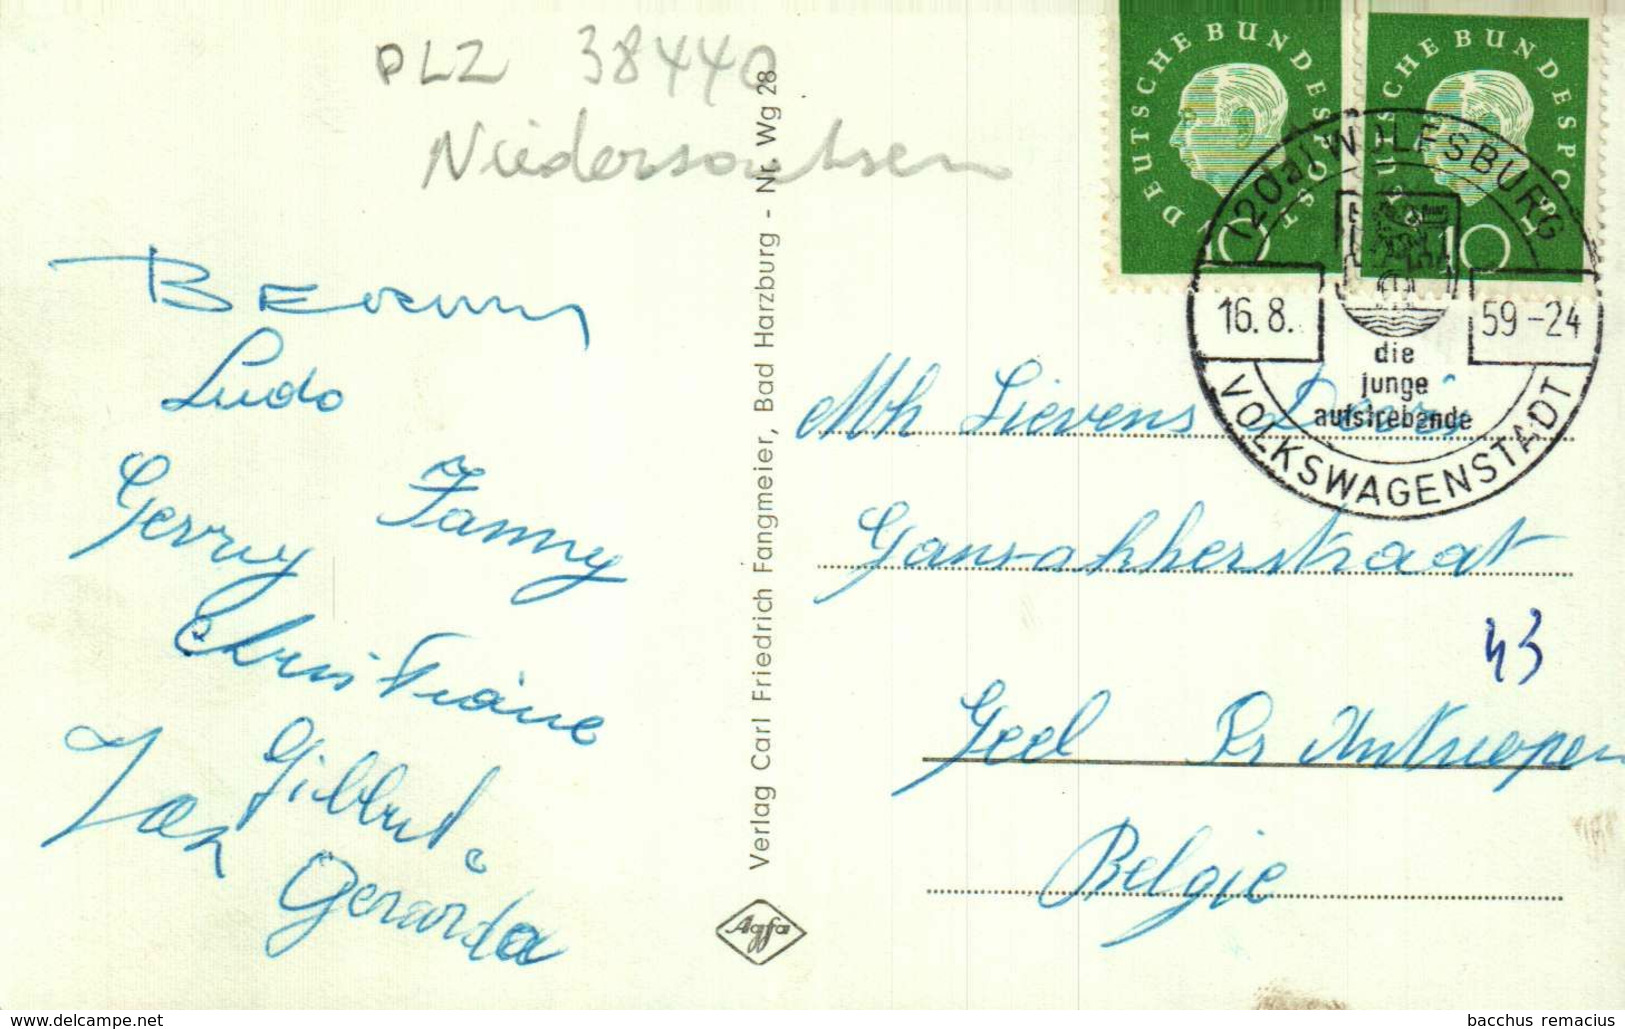 PLZ 38440
Niedersachsen
DEUTSCHE BUNDESPOST
10
DEUTSCHE BUNDESPOST
10
(20a) WOLFSBURG
16.8.
59-24
die
junge
aufstrebende
VOLKSWAGENSTADT
Ludo
Gerry Fanny
Christiane
Gilbert
Jan
Gerarda
Verlag Carl Friedrich Fangmeier, Bad Harzburg - Nr. Wg 28
Agfa
Mh Lievens
Gansakkerstraat
43
Geel Pr Antwerpen
Belgie
www.delcampe.net
bacchus remacius